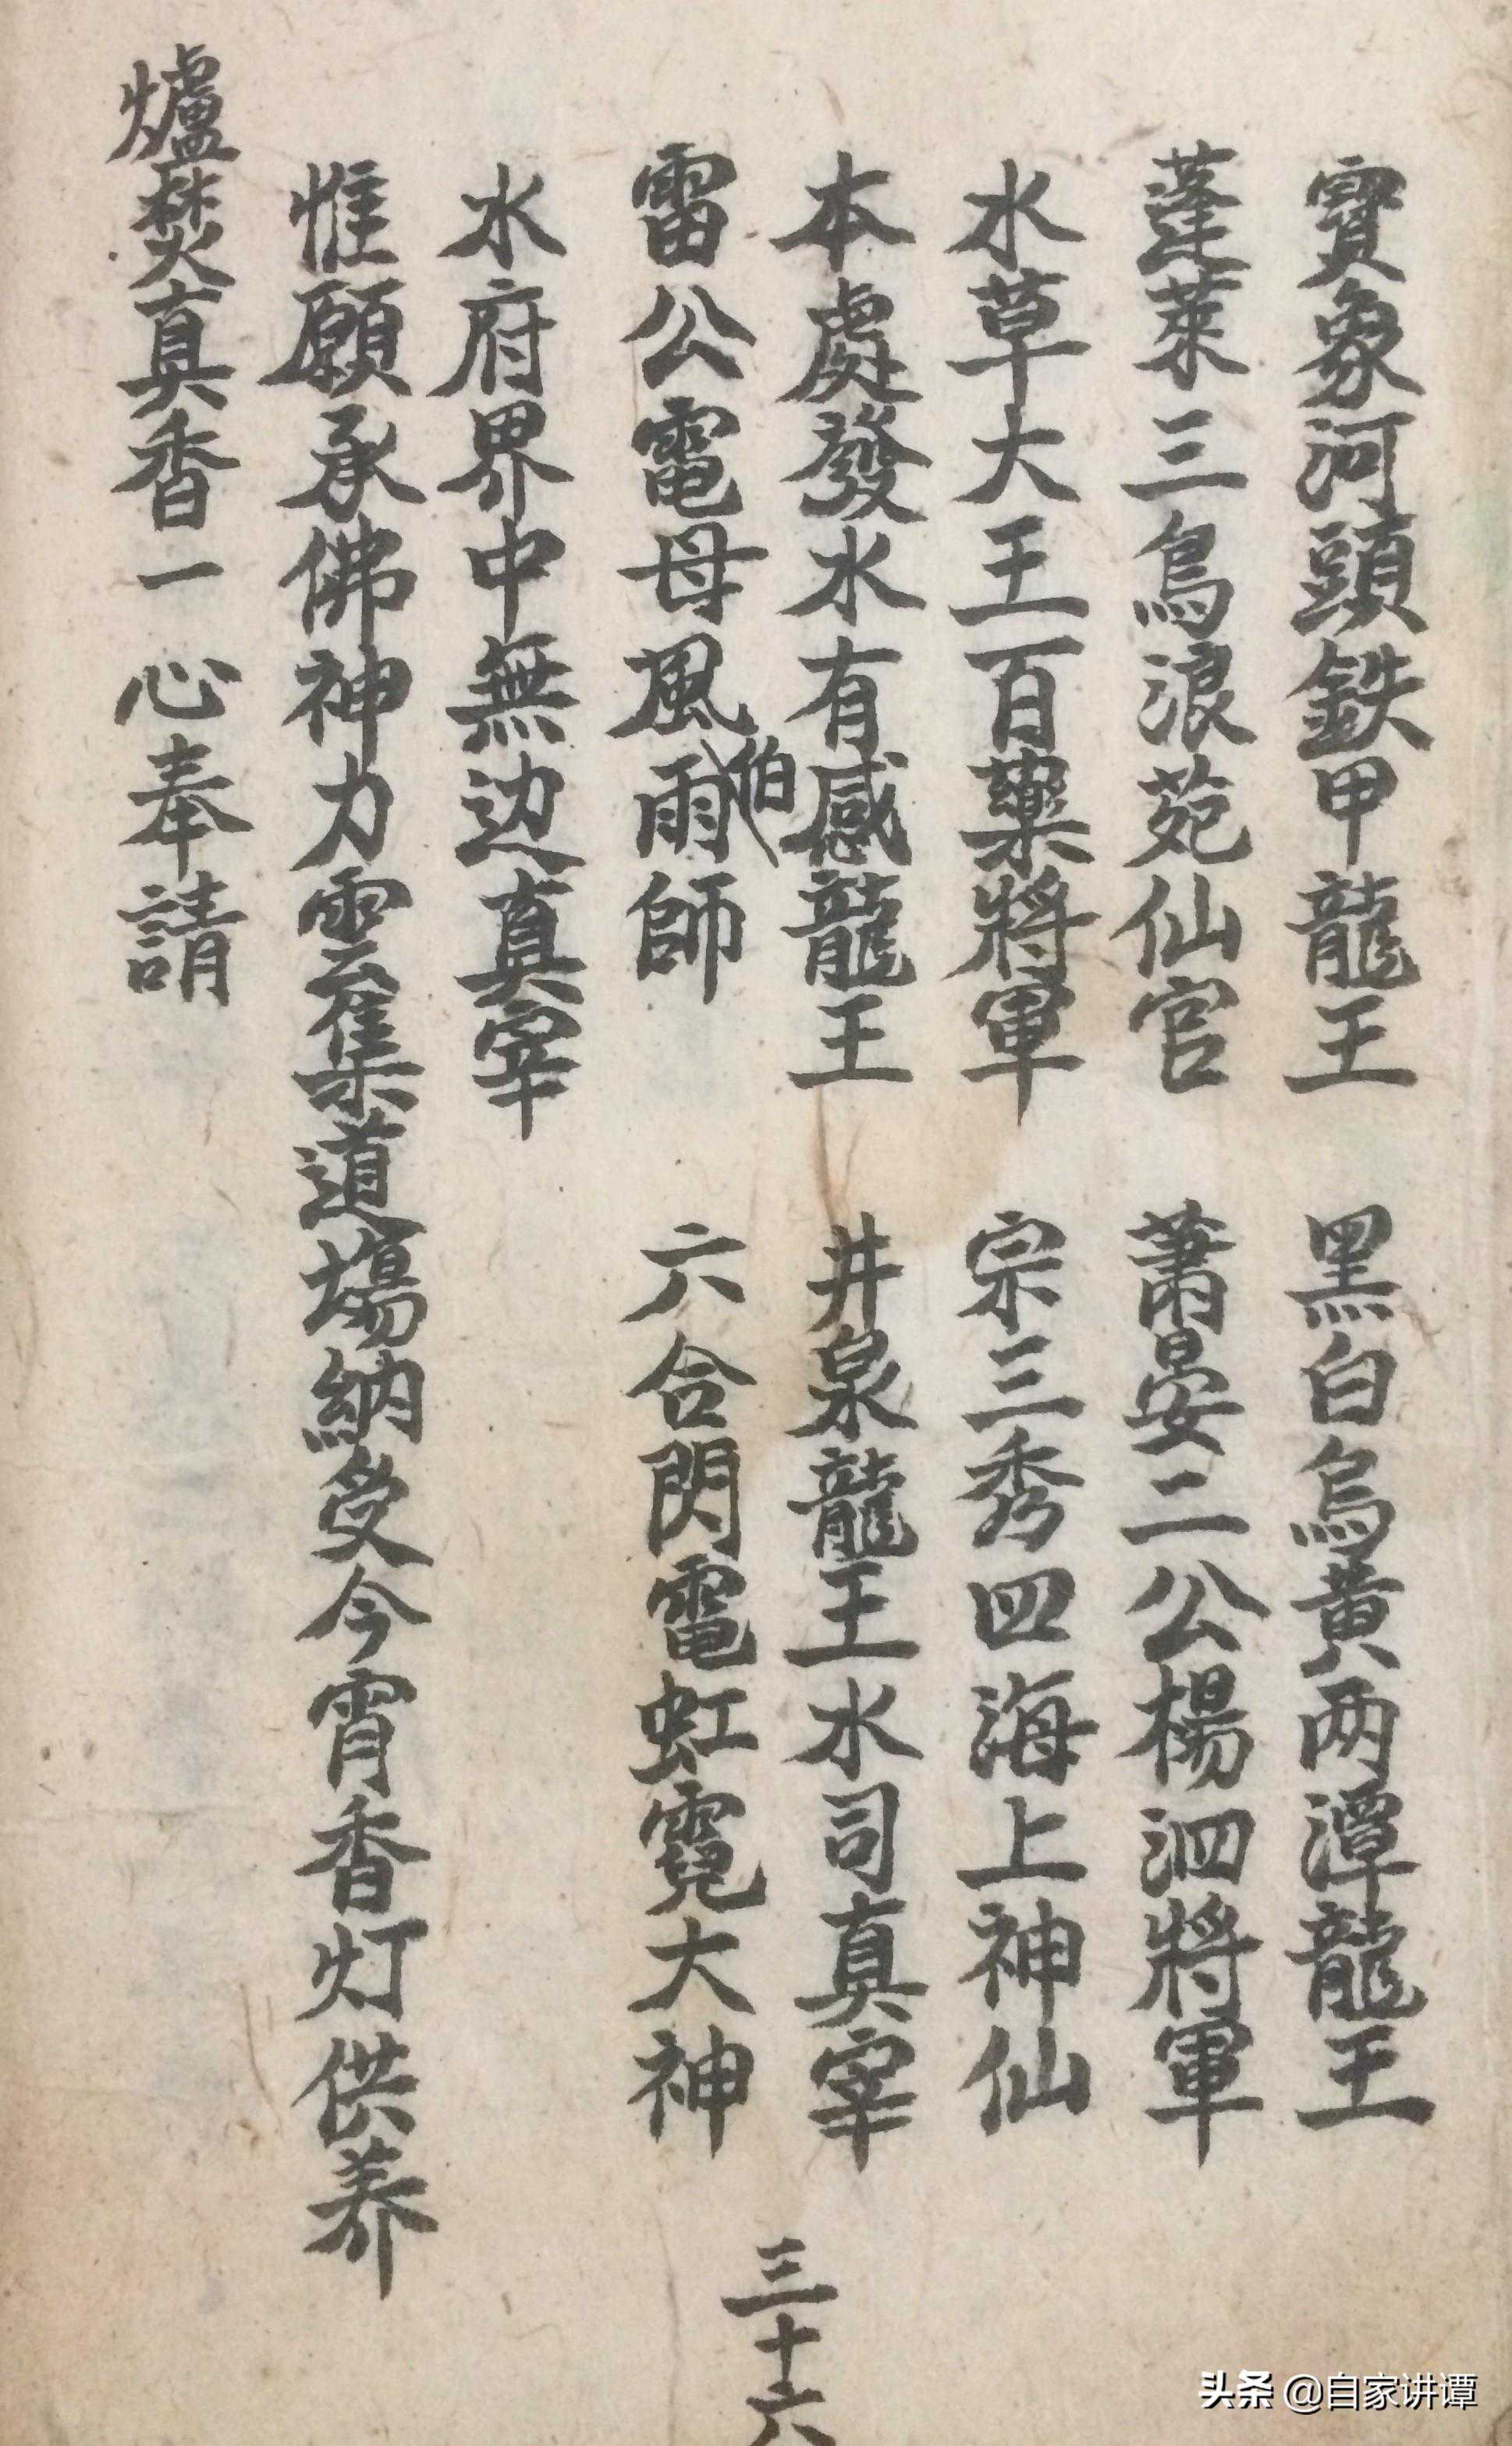 寶象河頭鉄甲龍王 黑白烏黃两潭龍王
蓬萊三鳥浪苑仙官 蕭晏二公楊泗將軍
水草大王百藥將軍 宗三秀四海上神仙
本處發水有感龍王 井泉龍王水司真宰
雷公電母風伯雨師 六合閃電虹霓大神
水府界中無边真宰
惟願承佛神力雲集道場納受今宵香灯供养
爐焚真香一心奉請
三十六
头条 @自家讲谭